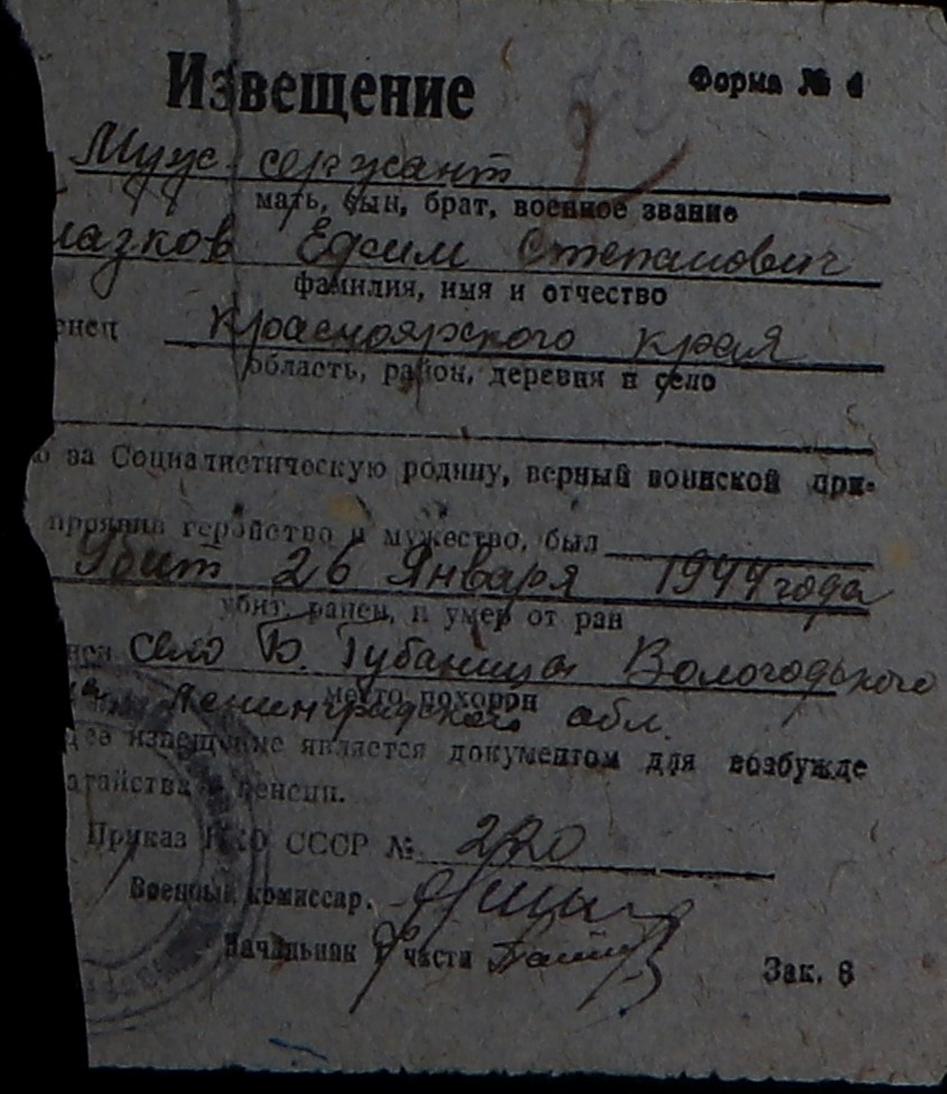 Извещение
Форма № 4
Муж. сержант
мать, сын, брат, военное звание
лазков Ефим Степанович
фамилия, имя и отчество
енец Красноярского края
область, район, деревня и село
за Социалистическую родину, верный воинской при-
проявив геройство и мужество, был
Убит 26 Января 1944 года
убит, ранен, и умер от ран
село Б. Губаницы Вологодского
место похорон
Ленинградской обл.
извещение является документом для возбужде
атайства пенсии.
Приказ НКО СССР № 220
Военный комиссар.
Начальник части
Зак. 6